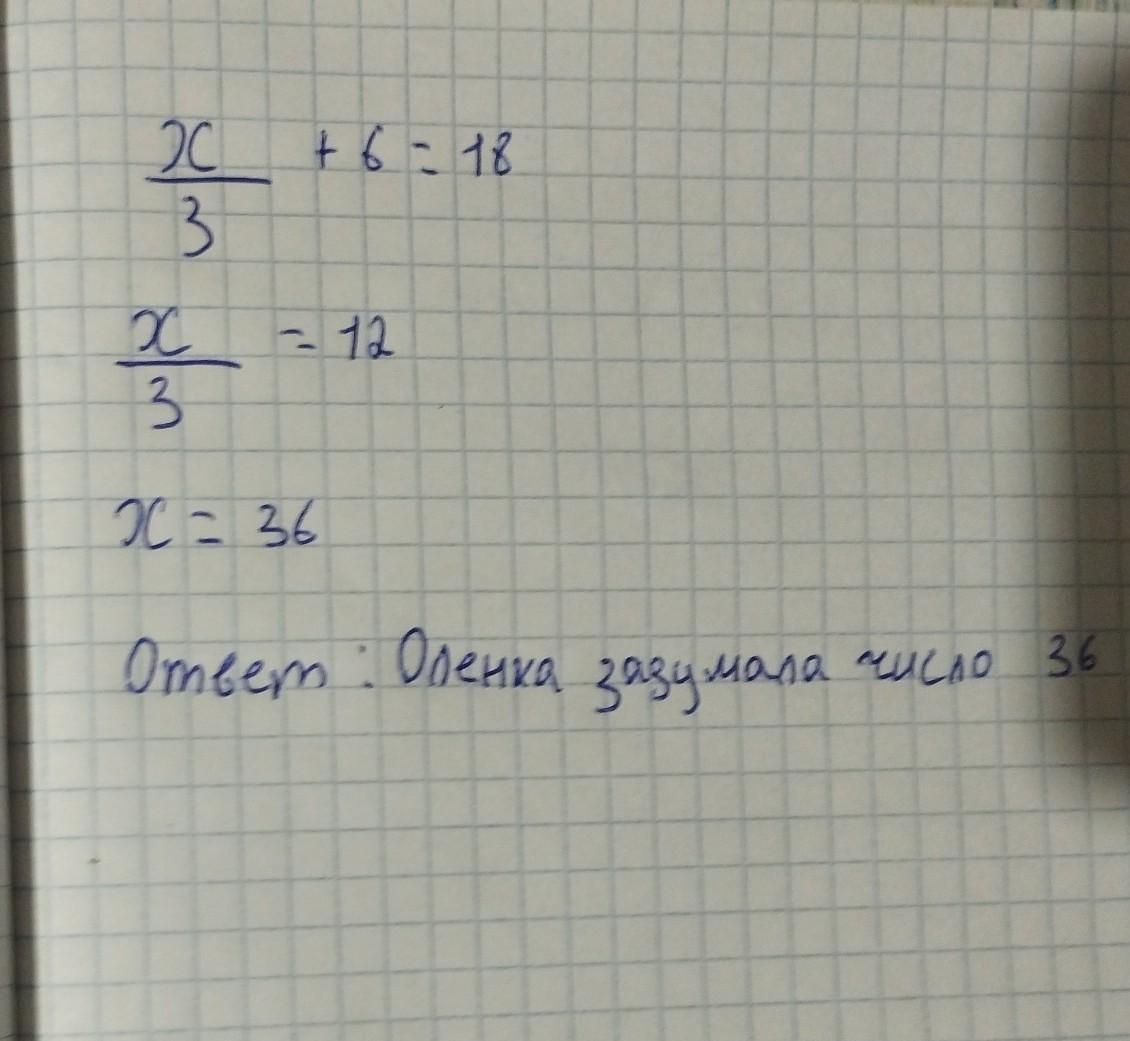 x
3
+ 6 = 18
x
3
= 12
x = 36
Ответ: Оленка загумала число 36